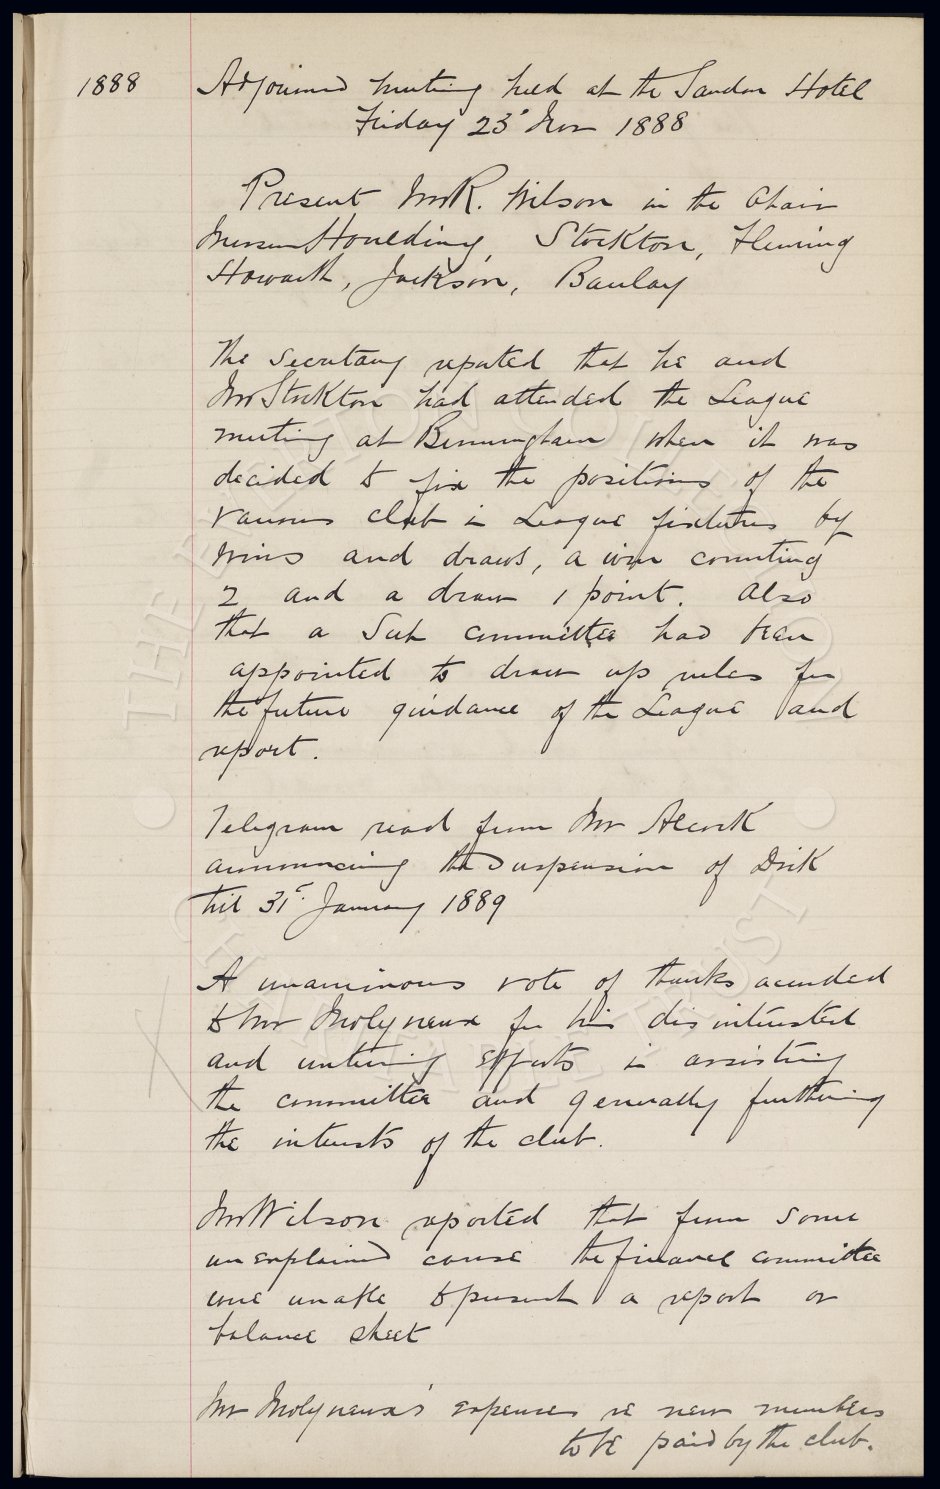 1888
Adjourned meeting held at the Sandon Hotel
Friday 23rd Nov 1888
Present Mr R. Wilson in the Chair
Messrs Houlding, Stockton, Fleming
Howarth, Jackson, Barclay
The Secretary reported that he and
Mr Stockton had attended the League
meeting at Birmingham when it was
decided to fix the positions of the
various club in League fixtures by
wins and draws, a win counting
2 and a draw 1 point. Also
that a Sub committee had been
appointed to draw up rules for
the future guidance of the League and
report.
Telegram read from Mr Alcock
announcing the suspension of Dick
till 31st January 1889
A unanimous vote of thanks accorded
to Mr Molyneux for his disinterested
and untiring efforts in assisting
the committee and generally furthering
the interests of the club.
Mr Wilson reported that from some
unexplained cause the finance committee
were unable to present a report or
balance sheet
Mr Molyneux's expenses re new members
to be paid by the club.